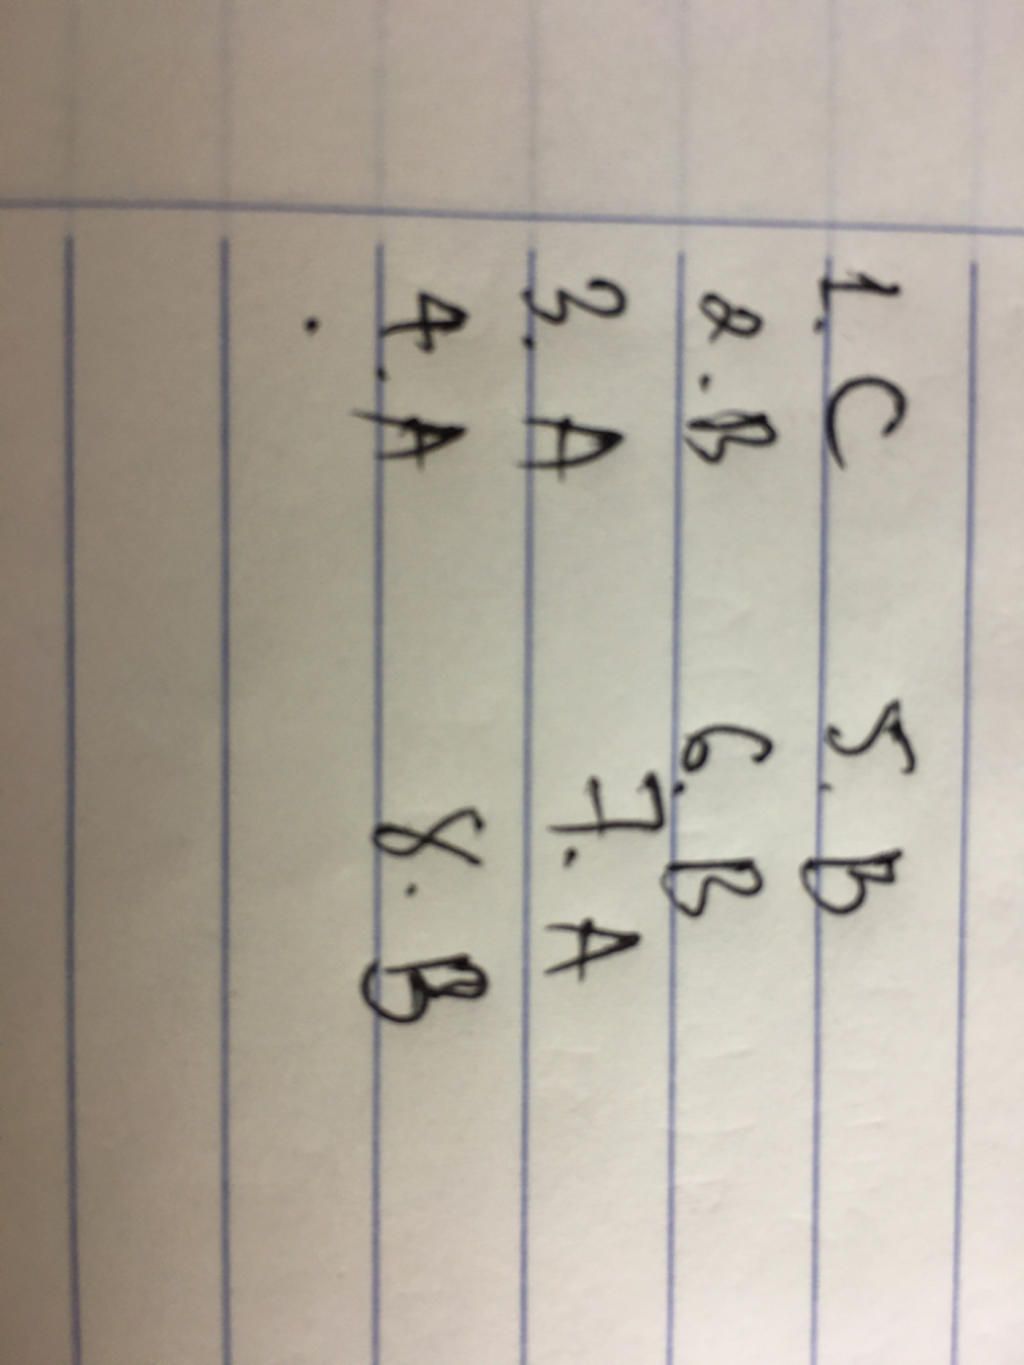 1. C 5. B
2. B 6. B
3. A 7. A
4. A 8. B